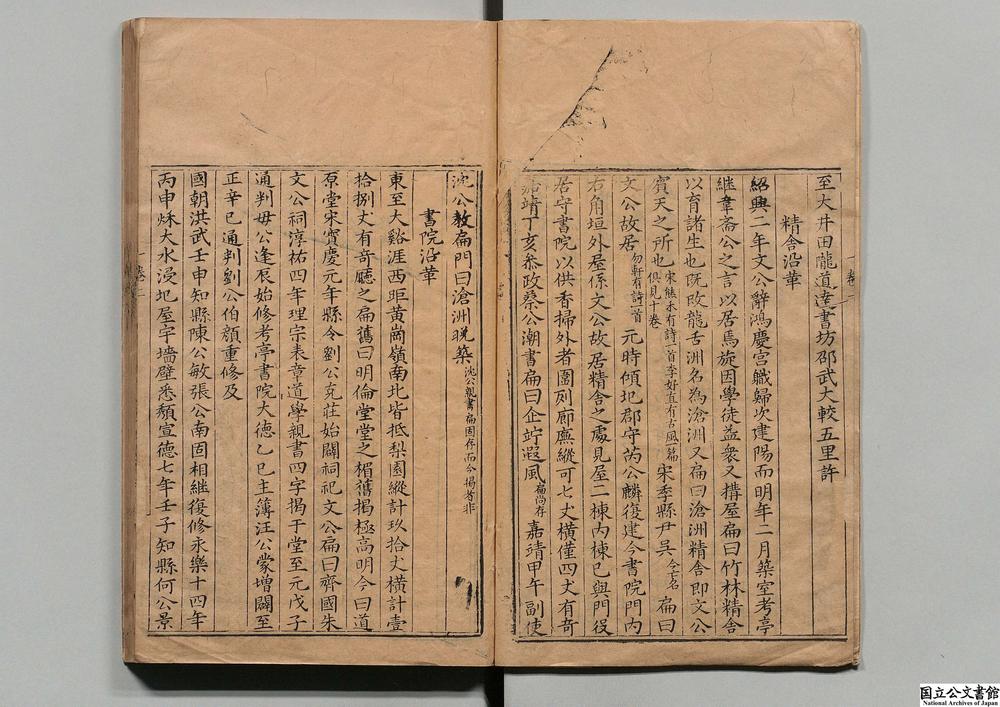 至大井田隴道達書坊邵武大較五里許
精舍沿革
紹興二年文公辭鴻慶宮職歸次建陽而明年二月築室考亭
継韋斋公之言以居焉旋因學徒益衆又搆屋扁曰竹林精舍
以育諸生也既改龍舌洲名為滄洲又扁曰滄洲精舍即文公
賓天之所也宋熊禾有詩一首李好直有古風一篇俱見十卷宋季縣尹吳今亡名扁曰
文公故居勿軒有詩一首元時傾圯郡守芮公麟復建今書院門内
右角垣外屋係文公故居精舍之處見屋二棟内棟已與門役
居守書院以供香掃外者圊則廊廡縱可七丈橫僅四丈有奇
嘉靖丁亥叅政桑公溥書扁曰企竚遐風扁尚存嘉靖甲午副使
沈公教扁門曰滄洲晚築沈公親書扁固存而今揭者非
書院沿革
東至大谿涯西距黃崗嶺南北皆抵梨園縱計玖拾丈橫計壹
拾捌丈有奇廳之扁舊曰明倫堂堂之楣舊揭極高明今曰道
原堂宋寶慶元年縣令劉公克莊始闢祠祀文公扁曰齊國朱
文公祠淳祐四年理宗表章道學親書四字揭于堂至元戊子
通判毋公逢辰始修考亭書院大德乙巳主簿汪公蒙增闢至
正辛巳通判劉公伯顏重修及
國朝洪武壬申知縣陳公敏張公南固相継復修永樂十四年
丙申秌大水浸圯屋宇墻壁悉頽宣德七年壬子知縣何公景
国立公文書館
National Archives of Japan